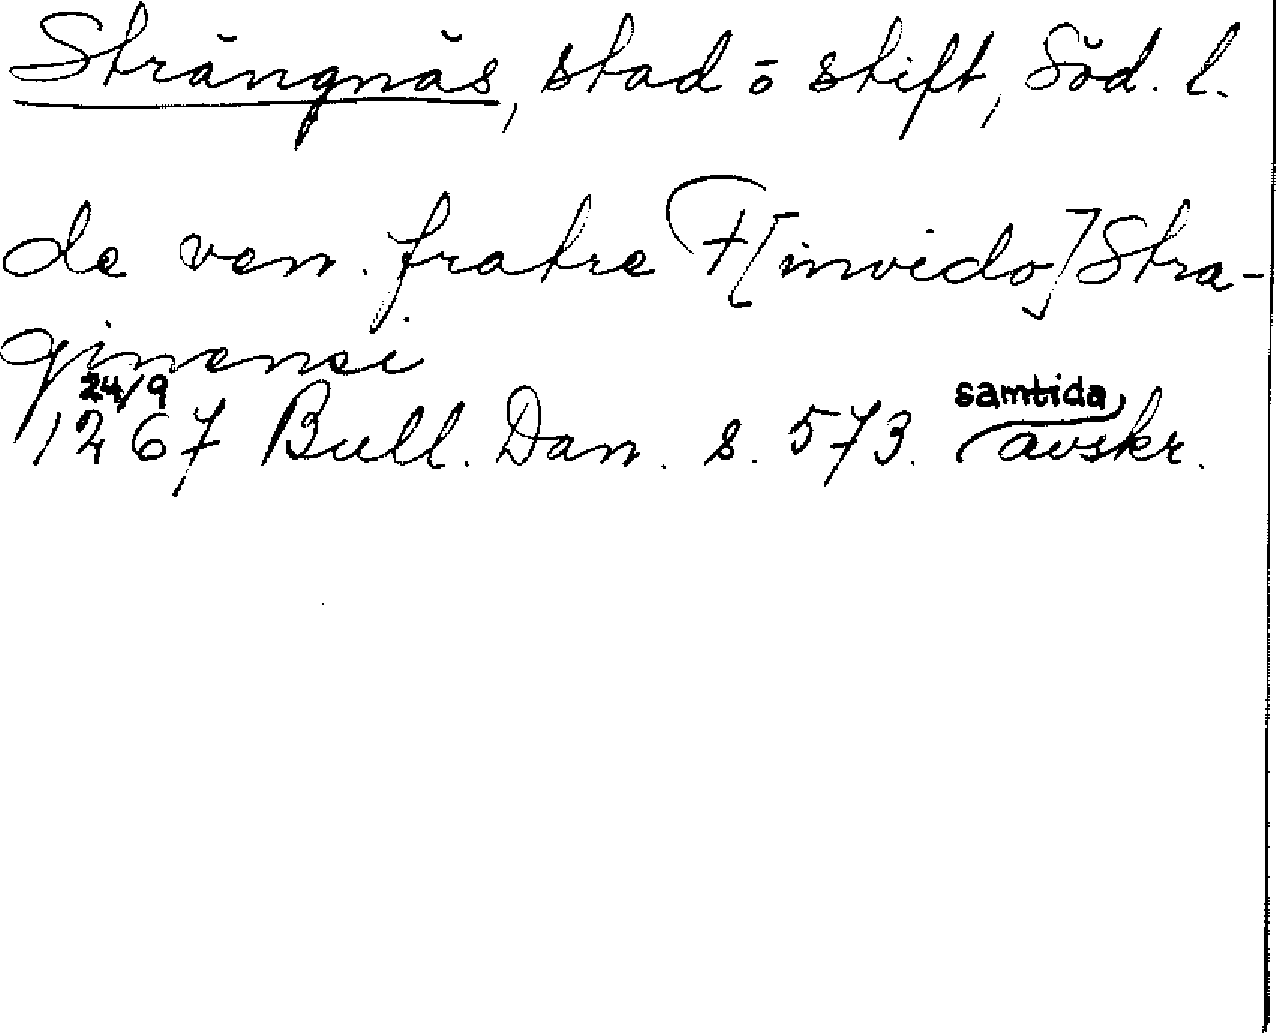 Strängnäs, stad o stift, Söd. l.
de ven. fratre F[invido] Stra-
ginensi
24/9
1267 Bull. Dan. s. 573. samtida avskr.